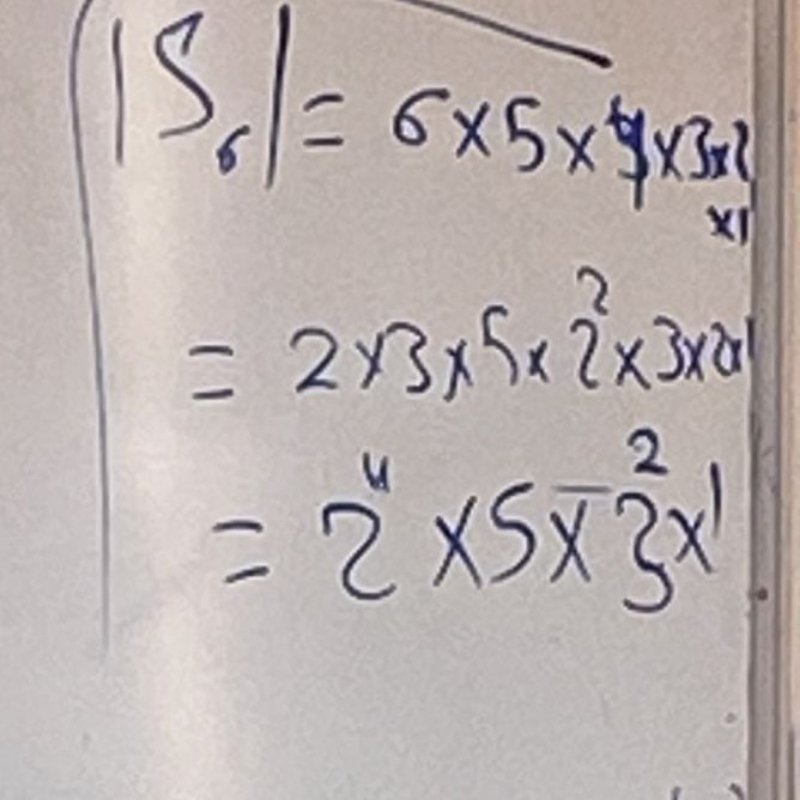 |S₆| = 6×5×4×3×2
×1
= 2×3×5×2²×3×2×1
= 2⁴×5×3²×1